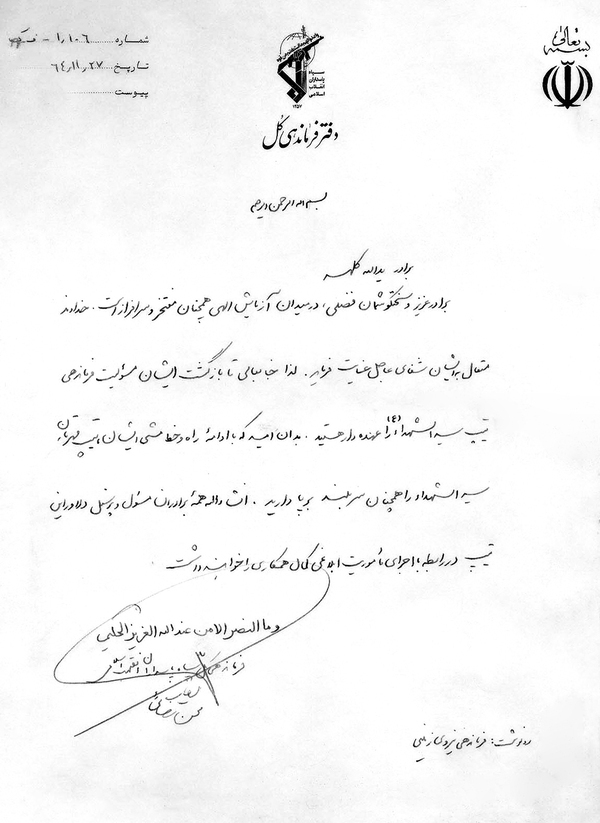 بسمه تعالی
شماره ۱٫۱۰۶ - ف
تاریخ ۶۴٫۱۱٫۲۷
پیوست
سپاه
پاسداران
انقلاب
اسلامی
۱۳۵۷
دفتر فرماندهی کل
بسم الله الرحمن الرحیم
برادر یدالله کلهر
برادر عزیز و سختکوشمان فضلی، در میدان آزمایش الهی همچنان مفتخر و سرافراز است. خداوند
متعال برایشان شفای عاجل عنایت فرماید. لذا جنابعالی تا بازگشت ایشان مسئولیت فرماندهی
تیپ سیدالشهداء (ع) را عهده دار هستید. بدان امید که با ادامه راه و خط مشی ایشان، تیپ قهرمان
سیدالشهداء را همچنان سربلند برپا دارید. انشاءالله همه برادران مسئول و پرسنل دلاور این
تیپ در رابطه با اجرای مأموریت ابلاغی کمال همکاری را خواهند داشت
و ما النصر الا من عند الله العزیز الحکیم
فرمانده کل سپاه پاسداران انقلاب اسلامی
محسن رضائی
رونوشت: فرماندهی نیروی زمینی